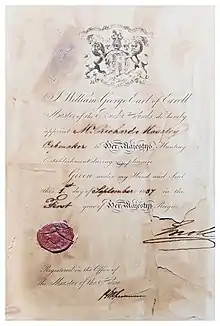 I William George Earl of Erroll
Master of the Buck Hounds do hereby
appoint Mr. Richard
to Her Majesty's Hunting
Establishment during pleasure
Given under my Hand and Seal
this 1st day of September 1837 in the
First year of Her Majesty's Reign
Erroll
Registered in the Office of
the Master of the